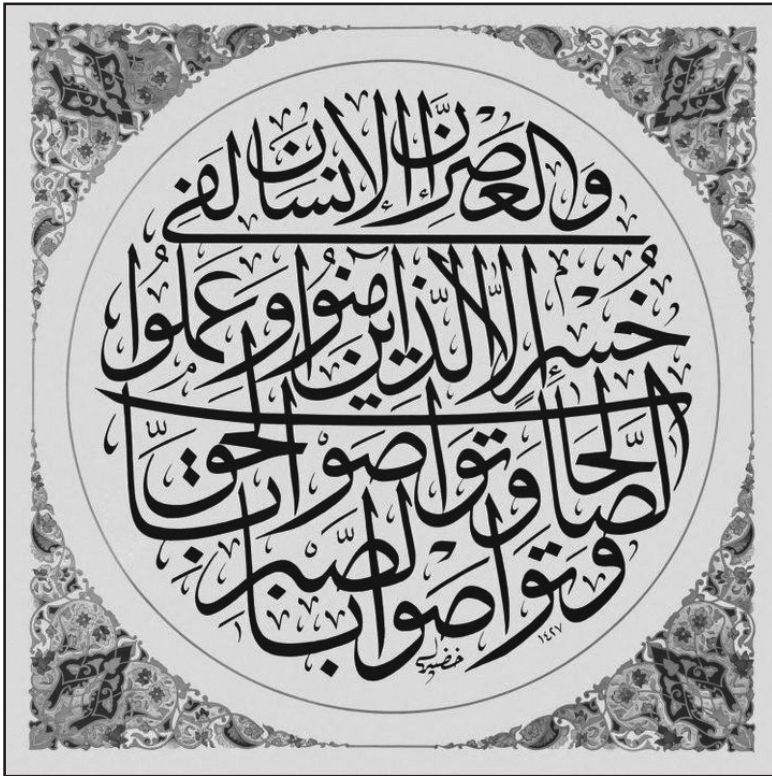 وَالعَصرِ إِنَّ الإِنسَانَ لَفِى
خُسْرٍ إِلَّا الَّذِينَ آمَنُوا وَعَمِلُوا
الصَّالِحَاتِ وَتَوَاصَوْا بِالحَقِّ
وَتَوَاصَوْا بِالصَّبْرِ
١٤٢٧